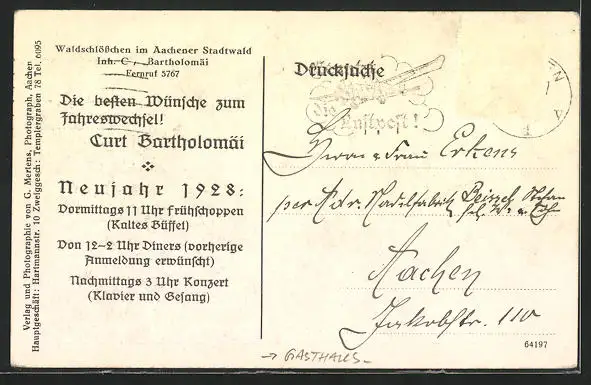 Waldschlößchen im Aachener Stadtwald
Inh. C. Bartholomäi
Fernruf 3767
Die besten Wünsche zum
Jahreswechsel!
Curt Bartholomäi
Neujahr 1928:
Vormittags 11 Uhr Frühschoppen
(Kaltes Büffet)
Von 12–2 Uhr Diners (vorherige
Anmeldung erwünscht)
Nachmittags 3 Uhr Konzert
(Klavier und Gesang)
Verlag und Photographie von G. Mertens, Photograph, Aachen
Hauptgeschäft: Hartmannstr. 10 Zweiggesch.: Templergraben 78 Tel. 6095
Drucksache
die
Luftpost!
Herrn u Frau Erkens
per Adr. Nadelfabrik Beissel
Aachen
Jakobstr. 110
64197
→ GASTHAUS